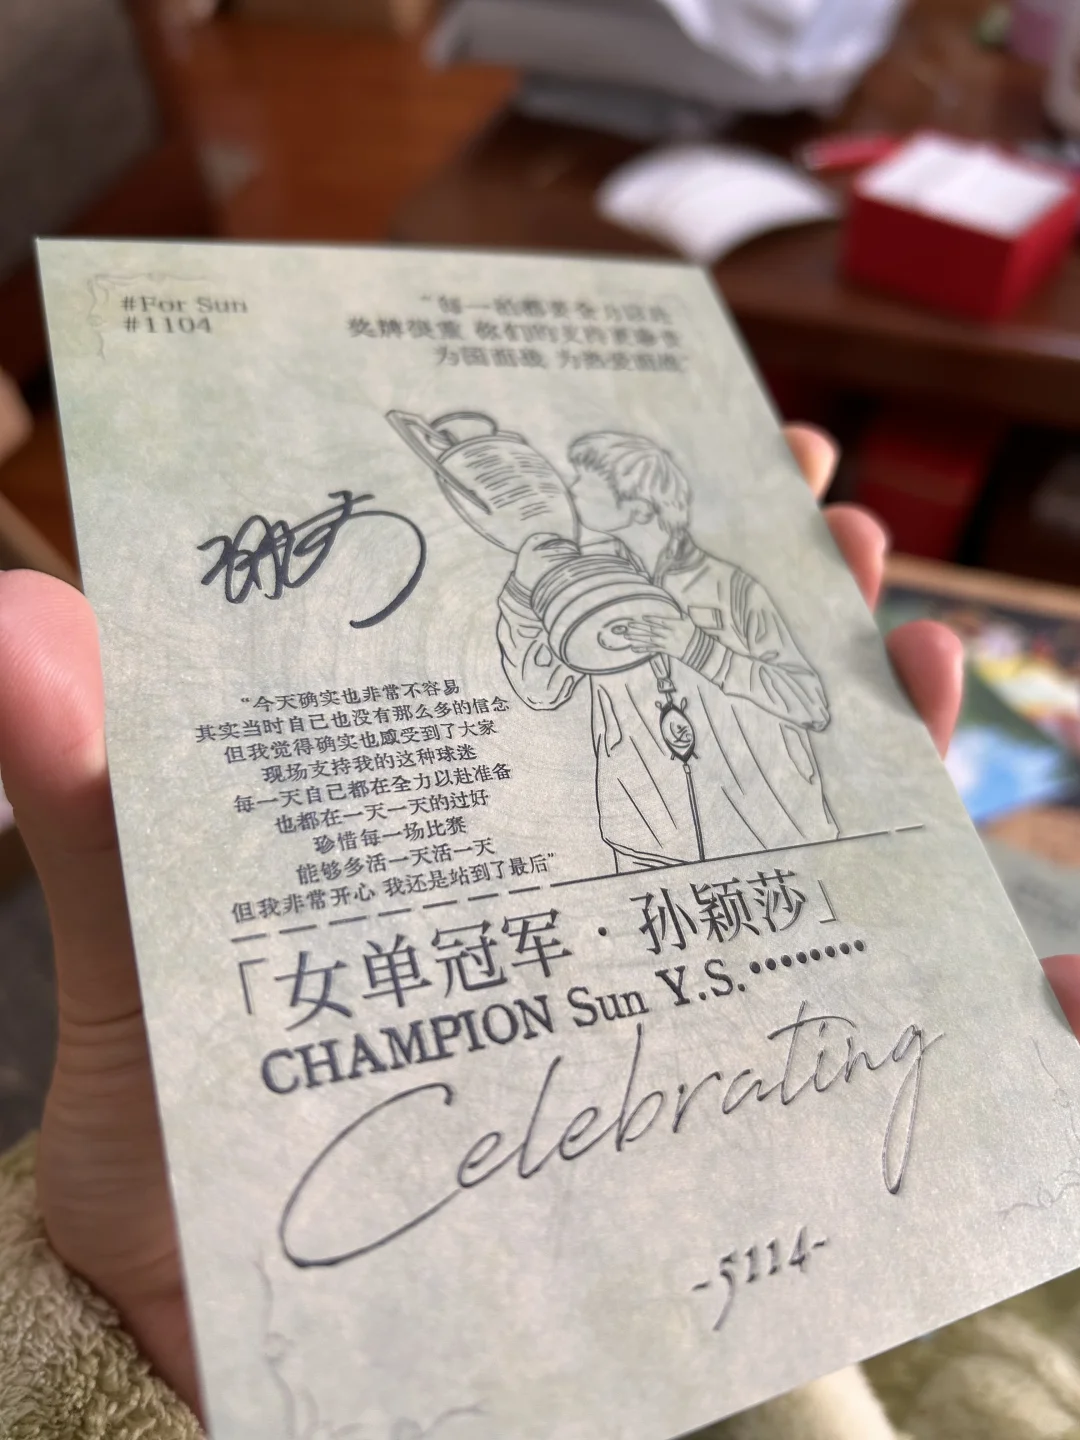 #For Sun
#1104
"每一拍都要全力以赴
奖牌很重 你们的支持更珍贵
为国而战 为热爱而战"
"今天确实也非常不容易
其实当时自己也没有那么多的信念
但我觉得确实也感受到了大家
现场支持我的这种球迷
每一天自己都在全力以赴准备
也都在一天一天的过好
珍惜每一场比赛
能够多活一天活一天
但我非常开心 我还是站到了最后"
「女单冠军·孙颖莎」
CHAMPION Sun Y.S.········
Celebrating
-5114-